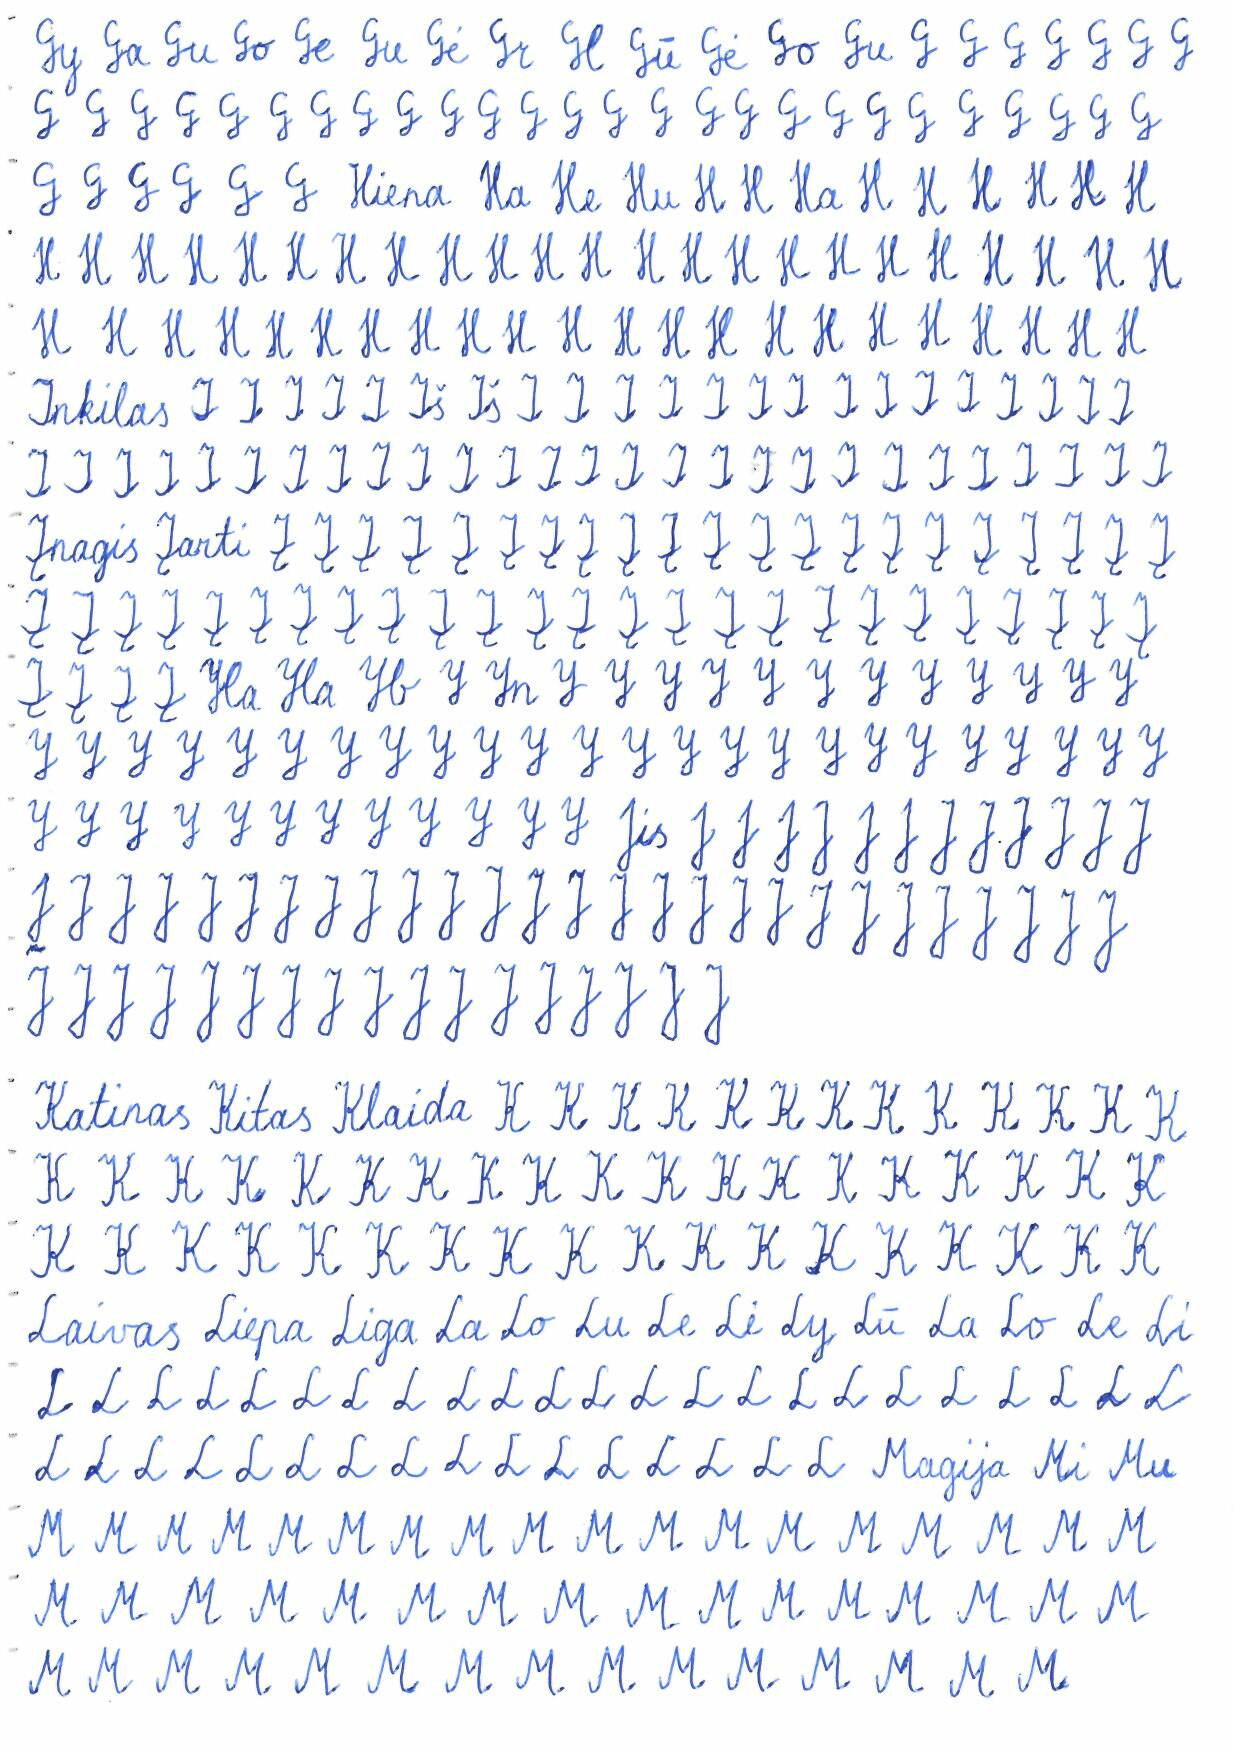 Gy Ga Gu Go Ge Gu Gė Gr Gl Gū Gė Go Gu G G G G G G G
G G G G G G G G G G G G G G G G G G G G G G G G G G
G G G G G G Hiena Ha He Hu H H Ha H H H H H H
H H H H H H H H H H H H H H H H H H H H H H H
H H H H H H H H H H H H H H H H H H H H H H
Inkilas I I I I I Iš Iš I I I I I I I I I I I I I I I
I I I I I I I I I I I I I I I I I I I I I I I I I I I
Įnagis Įarti Į Į Į Į Į Į Į Į Į Į Į Į Į Į Į Į Į Į Į Į Į
Į Į Į Į Į Į Į Į Į Į Į Į Į Į Į Į Į Į Į Į Į Į Į Į Į
Į Į Į Į Yla Yla Yb Y Yn Y Y Y Y Y Y Y Y Y Y Y Y
Y Y Y Y Y Y Y Y Y Y Y Y Y Y Y Y Y Y Y Y Y Y Y Y
Y Y Y Y Y Y Y Y Y Y Y Y Jis J J J J J J J J J J J J
J J J J J J J J J J J J J J J J J J J J J J J J J J J
J J J J J J J J J J J J J J J J J
Katinas Kitas Klaida K K K K K K K K K K K K K
K K K K K K K K K K K K K K K K K K K
K K K K K K K K K K K K K K K K K K
Laivas Liepa Liga La Lo Lu Le Lė Ly Lū La Lo Le Li
L L L L L L L L L L L L L L L L L L L L L L L
L L L L L L L L L L L L L L L L Magija Mi Mu
M M M M M M M M M M M M M M M M M M
M M M M M M M M M M M M M M M M
M M M M M M M M M M M M M M M